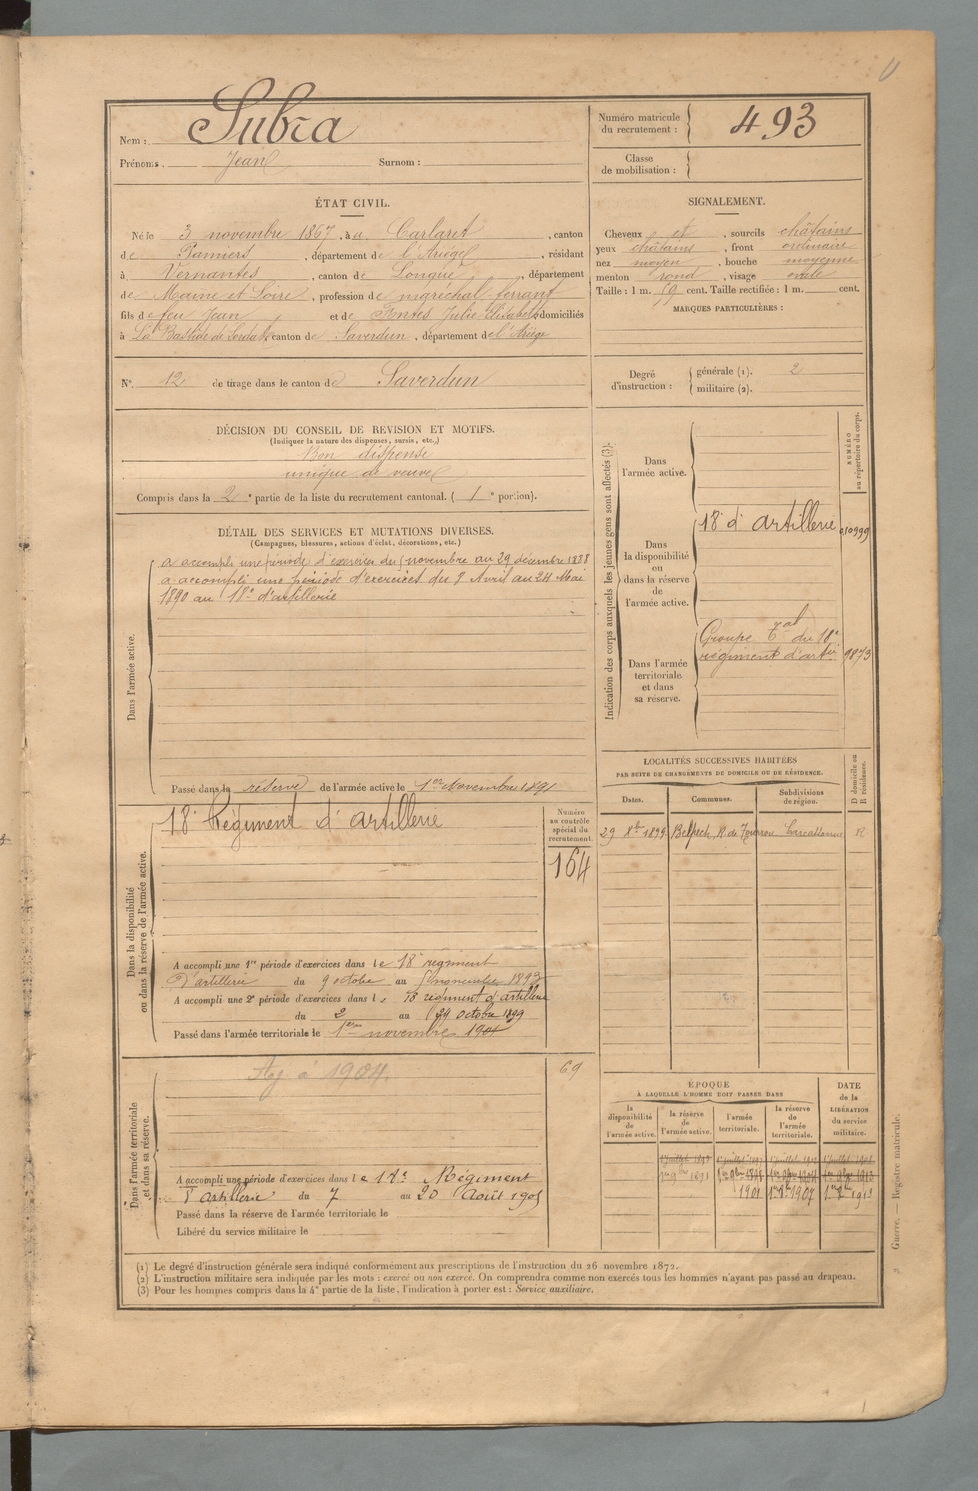 Nom : Subra
Prénoms. Jean Surnom :
Numéro matricule
du recrutement : 493
Classe
de mobilisation :
ÉTAT CIVIL.
Né le 3 novembre 1867, à au Carlaret, canton
de Pamiers, département de l'Ariège, résidant
à Vernantes, canton de Longué, département
de Maine et Loire, profession de maréchal ferrant
fils de feu Jean et de Fontes Julie Elisabeth domiciliés
à La Bastide de Lordat canton de Saverdun, département de l'Ariège
N° 12 de tirage dans le canton de Saverdun
SIGNALEMENT.
Cheveux et, sourcils châtains
yeux châtains, front ordinaire
nez moyen, bouche moyenne
menton rond, visage ovale
Taille : 1 m. 69 cent. Taille rectifiée : 1 m. cent.
MARQUES PARTICULIÈRES :
Degré
d'instruction :
générale (1). 2
militaire (2).
DÉCISION DU CONSEIL DE REVISION ET MOTIFS.
(Indiquer la nature des dispenses, sursis, etc.)
Bon dispensé
unique de veuve
Compris dans la 2e partie de la liste du recrutement cantonal. ( 1e portion).
DÉTAIL DES SERVICES ET MUTATIONS DIVERSES.
(Campagnes, blessures, actions d'éclat, décorations, etc.)
Dans l'armée active.
a accompli une période d'exercices du novembre au 29 décembre 1888
a accompli une période d'exercices du 8 Avril au 24 Mai
1890 au 18e d'artillerie
Passé dans la réserve de l'armée active le 1er Novembre 1891
Dans la disponibilité
ou dans la réserve de l'armée active.
18e Régiment d'artillerie
Numéro
au contrôle
spécial du
recrutement.
164
A accompli une 1re période d'exercices dans le 18e régiment
d'artillerie du 9 octobre au 5 novembre 1893
A accompli une 2e période d'exercices dans le 18 régiment d'artillerie
du 2 au 29 octobre 1899
Passé dans l'armée territoriale le 1er novembre 1901
Dans l'armée territoriale
et dans sa réserve.
à 1904.
69
A accompli une période d'exercices dans le 18e Régiment
d'artillerie du 7 au 20 Août 1905
Passé dans la réserve de l'armée territoriale le
Libéré du service militaire le
Indication des corps auxquels les jeunes gens sont affectés (3).
NUMÉRO
au répertoire du corps.
Dans
l'armée active.
Dans
la disponibilité
ou
dans la réserve
de
l'armée active.
18e d'artillerie
Dans l'armée
territoriale
et dans
sa réserve.
Groupe Tal du 18e
régiment d'artie
9873
LOCALITÉS SUCCESSIVES HABITÉES
PAR SUITE DE CHANGEMENTS DE DOMICILE OU DE RÉSIDENCE.
D domicile ou
R résidence.
Dates. Communes. Subdivisions
de région.
29 8bre 1899 Belpech, R. de Carcassonne R
ÉPOQUE
À LAQUELLE L'HOMME DOIT PASSER DANS
DATE
de la
LIBÉRATION
du service
militaire.
la
disponibilité
de
l'armée active.
la réserve
de
l'armée active.
l'armée
territoriale.
la réserve
de
l'armée
territoriale.
1er 9bre 1891
1901 1er 9bre 1907 1er 9bre 1913
Guerre. — Registre matricule.
(1) Le degré d'instruction générale sera indiqué conformément aux prescriptions de l'instruction du 26 novembre 1872.
(2) L'instruction militaire sera indiquée par les mots : exercé ou non exercé. On comprendra comme non exercés tous les hommes n'ayant pas passé au drapeau.
(3) Pour les hommes compris dans la 4e partie de la liste, l'indication à porter est : Service auxiliaire.